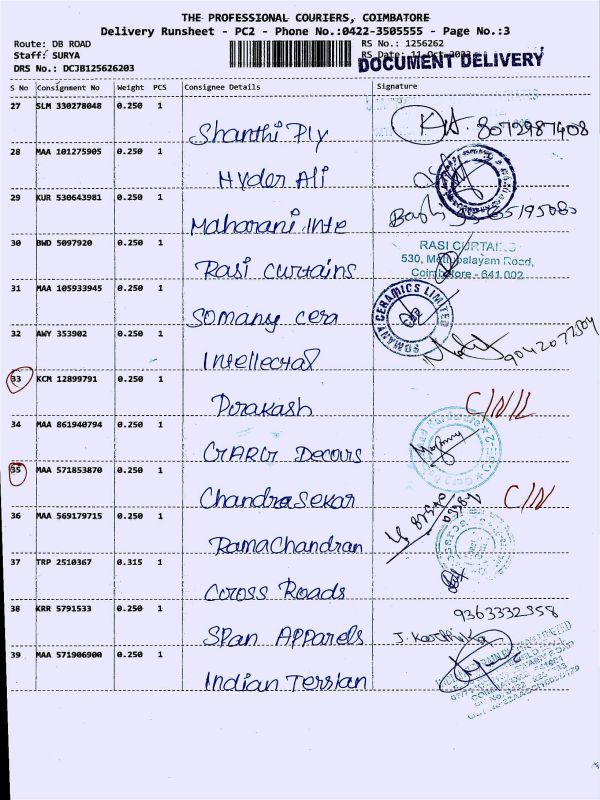 THE PROFESSIONAL COURIERS, COIMBATORE
Delivery Runsheet - PC2 - Phone No.:0422-3505555 - Page No.:3
Route: DB ROAD
RS No.: 1256262
Staff: SURYA
RS Date: 11-Oct-2023
DRS No.: DCJB125626203
DOCUMENT DELIVERY
S No Consignment No Weight PCS Consignee Details Signature
27 SLM 330278048 0.250 1 Shanthi Ply
28 MAA 101275905 0.250 1 Hyder Ali
29 KUR 530643981 0.250 1 Maharani Inte
30 BWD 5097920 0.250 1 Rasi Curtains
RASI CURTAINS
530, Mettupalayam Road,
Coimbatore - 641 002
31 MAA 105933945 0.250 1 Somany cera
SOMANY CERAMICS LIMITED
32 AWY 353902 0.250 1 Intellectral
9042077504
33 KCM 12899791 0.250 1 Prakash C/N/L
34 MAA 861940794 0.250 1 GARG Decours
35 MAA 571853870 0.250 1 Chandrasekar C/N
36 MAA 569179715 0.250 1 RamaChandran
37 TRP 2510367 0.315 1 Cross Roads
38 KRR 5791533 0.250 1 Span Apparels
9363332358
J. Karthika
39 MAA 571906900 0.250 1 Indian Tersian